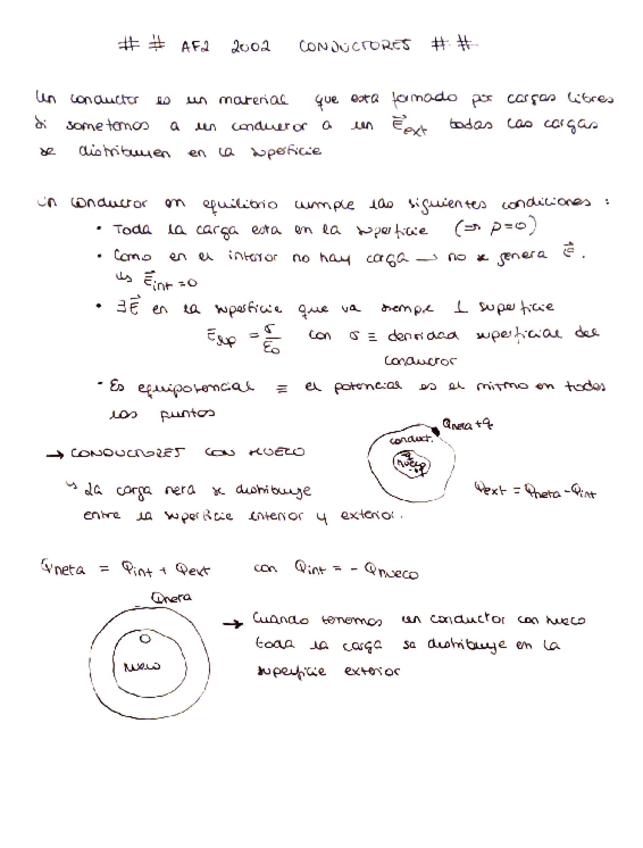 # # AF2 2002 CONDUCTORES # #
Un conductor es un material que esta formado por cargas libres
Si sometemos a un conductor a un E⃗ext todas las cargas
se distribuyen en la superficie
Un conductor en equilibrio cumple las siguientes condiciones :
• Toda la carga esta en la superficie (⇒ ρ=0)
• Como en el interior no hay carga → no se genera E⃗.
↳ E⃗int = 0
• ∃E⃗ en la superficie que va siempre ⊥ superficie
Esup = σ/ε0 con σ ≡ densidad superficial del
conductor
• Es equipotencial ≡ el potencial es el mismo en todos
los puntos
→ CONDUCTORES CON HUECO
Qneta + q
conduct.
hueco
↳ La carga neta se distribuye
entre la superficie interior y exterior.
Qext = Qneta - Qint
Qneta = Qint + Qext con Qint = - Qhueco
Qneta
0
hueco
→ Cuando tenemos un conductor con hueco
toda la carga se distribuye en la
superficie exterior